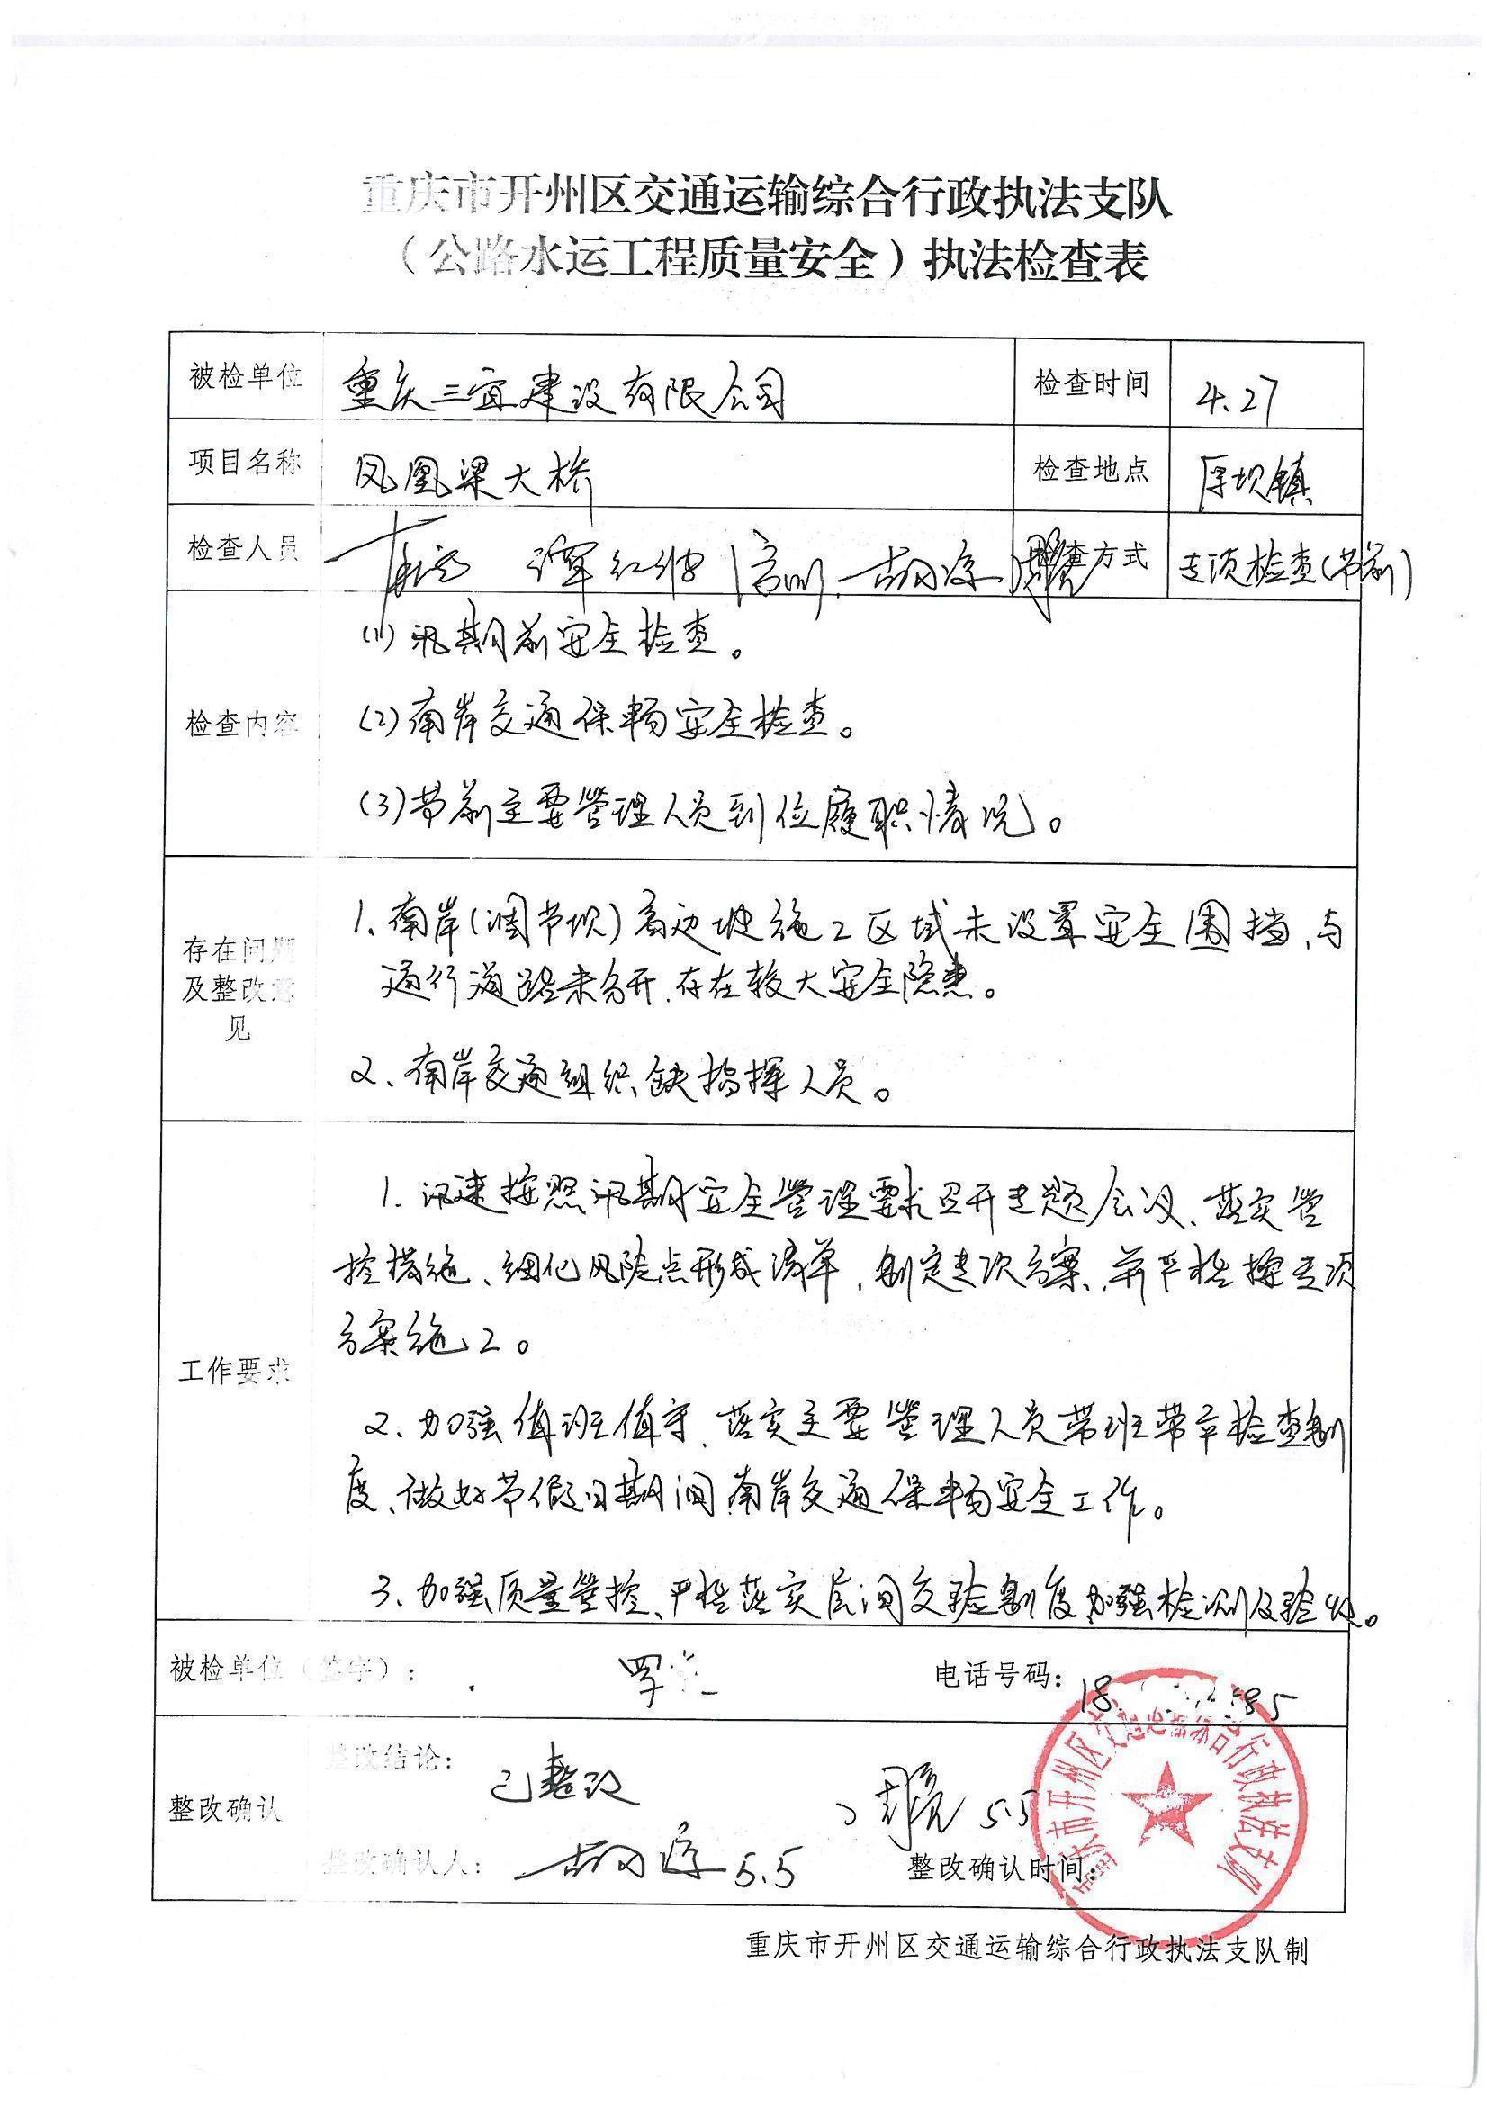 重庆市开州区交通运输综合行政执法支队
（公路水运工程质量安全）执法检查表
被检单位 重庆三宜建设有限公司 检查时间 4.27
项目名称 凤凰梁大桥 检查地点 厚坝镇
检查人员 谭红卫 胡凉 周亮 检查方式 专项检查(节前)
检查内容
(1) 汛期前安全检查。
(2) 南岸交通保畅安全检查。
(3) 节前主要管理人员到位履职情况。
存在问题及整改意见
1. 南岸(调节坝)高边坡施工区域未设置安全围挡、与
通行道路未分开,存在较大安全隐患。
2、南岸交通组织缺指挥人员。
工作要求
1. 迅速按照汛期安全管理要求召开专题会议、落实管
控措施、细化风险点形成清单,制定专项方案,并严格按专项
方案施工。
2、加强值班值守、落实主要管理人员带班带车检查制
度、做好节假日期间,南岸交通保畅安全工作。
3、加强质量管控、严格落实层间交验制度加强检测及验收。
被检单位（签字）： 罗 电话号码: 18 85
整改确认
整改结论: 已整改 周亮 5.5
整改确认人: 胡凉 5.5 整改确认时间:
重庆市开州区交通运输综合行政执法支队
重庆市开州区交通运输综合行政执法支队制